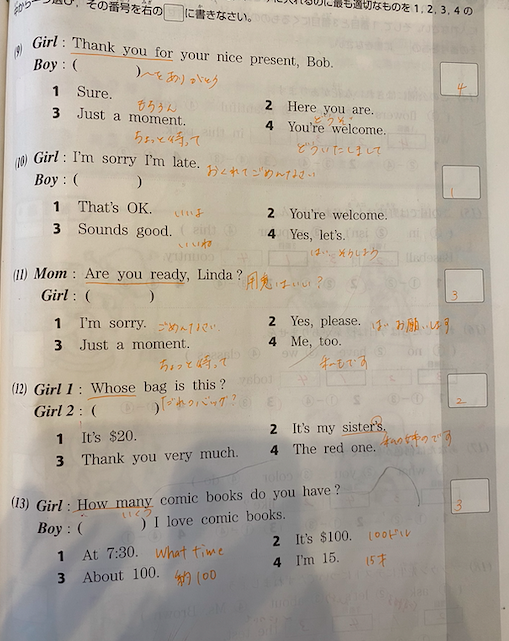 その番号を右の に書きなさい。 に入れるのに最も適切なものを1, 2, 3, 4の
(9) Girl : Thank you for your nice present, Bob.
Boy : ( ) 〜をありがとう
4
1 Sure. 2 Here you are.
もちろん どうぞ
3 Just a moment. 4 You're welcome.
ちょっと待って どういたしまして
(10) Girl : I'm sorry I'm late. おくれてごめんなさい
Boy : ( )
1
1 That's OK. いいよ 2 You're welcome.
3 Sounds good. いいね 4 Yes, let's.
はい そうしよう
(11) Mom : Are you ready, Linda? 用意はいい?
Girl : ( )
3
1 I'm sorry. ごめんなさい 2 Yes, please. はいお願いします
3 Just a moment. 4 Me, too.
ちょっと待って 私もです
(12) Girl 1 : Whose bag is this?
Girl 2 : ( ) だれのバッグ?
2
1 It's $20. 2 It's my sister's.
3 Thank you very much. 4 The red one. 私の姉のです
(13) Girl : How many comic books do you have?
いくつ
Boy : ( ) I love comic books.
3
1 At 7:30. What time 2 It's $100. 100ドル
3 About 100. 約100 4 I'm 15. 15才